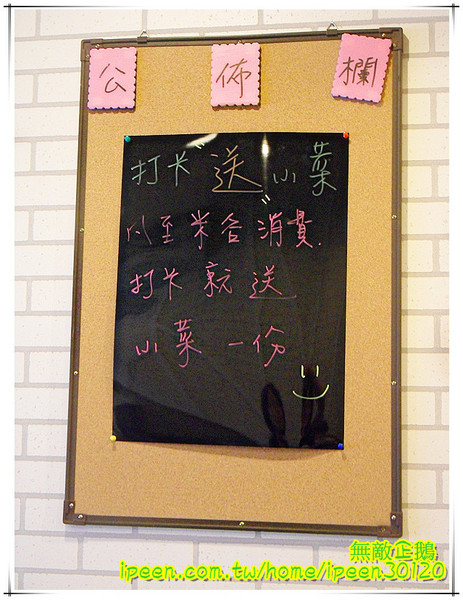 公佈欄
打卡"送"小菜
至米谷消費.
打卡就送
小菜一份
無敵企鵝
ipeen.com.tw/home/ipeen30120